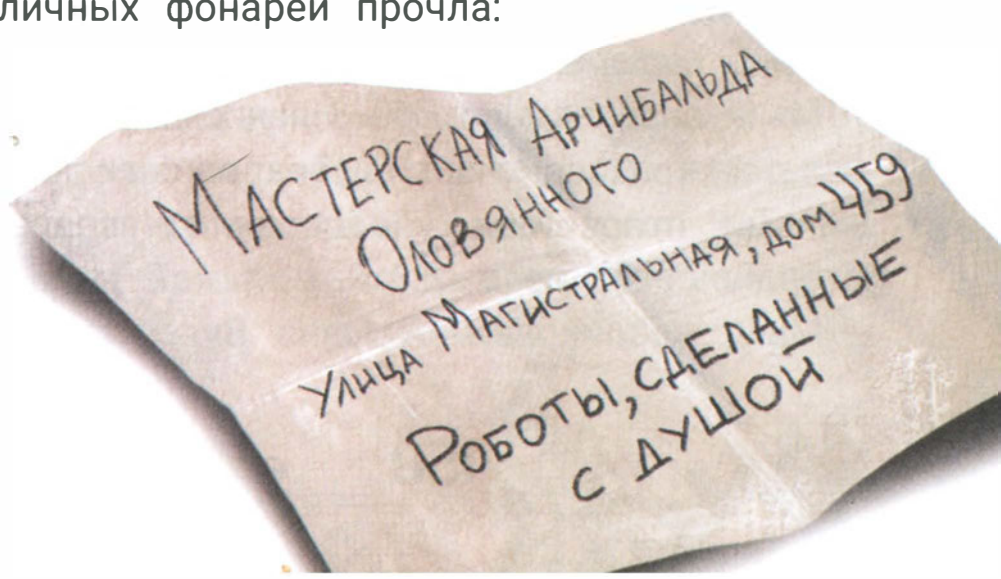 личных фонарей прочла:
Мастерская Арчибальда
Оловянного
Улица Магистральная, дом 459
Роботы, сделанные
с душой